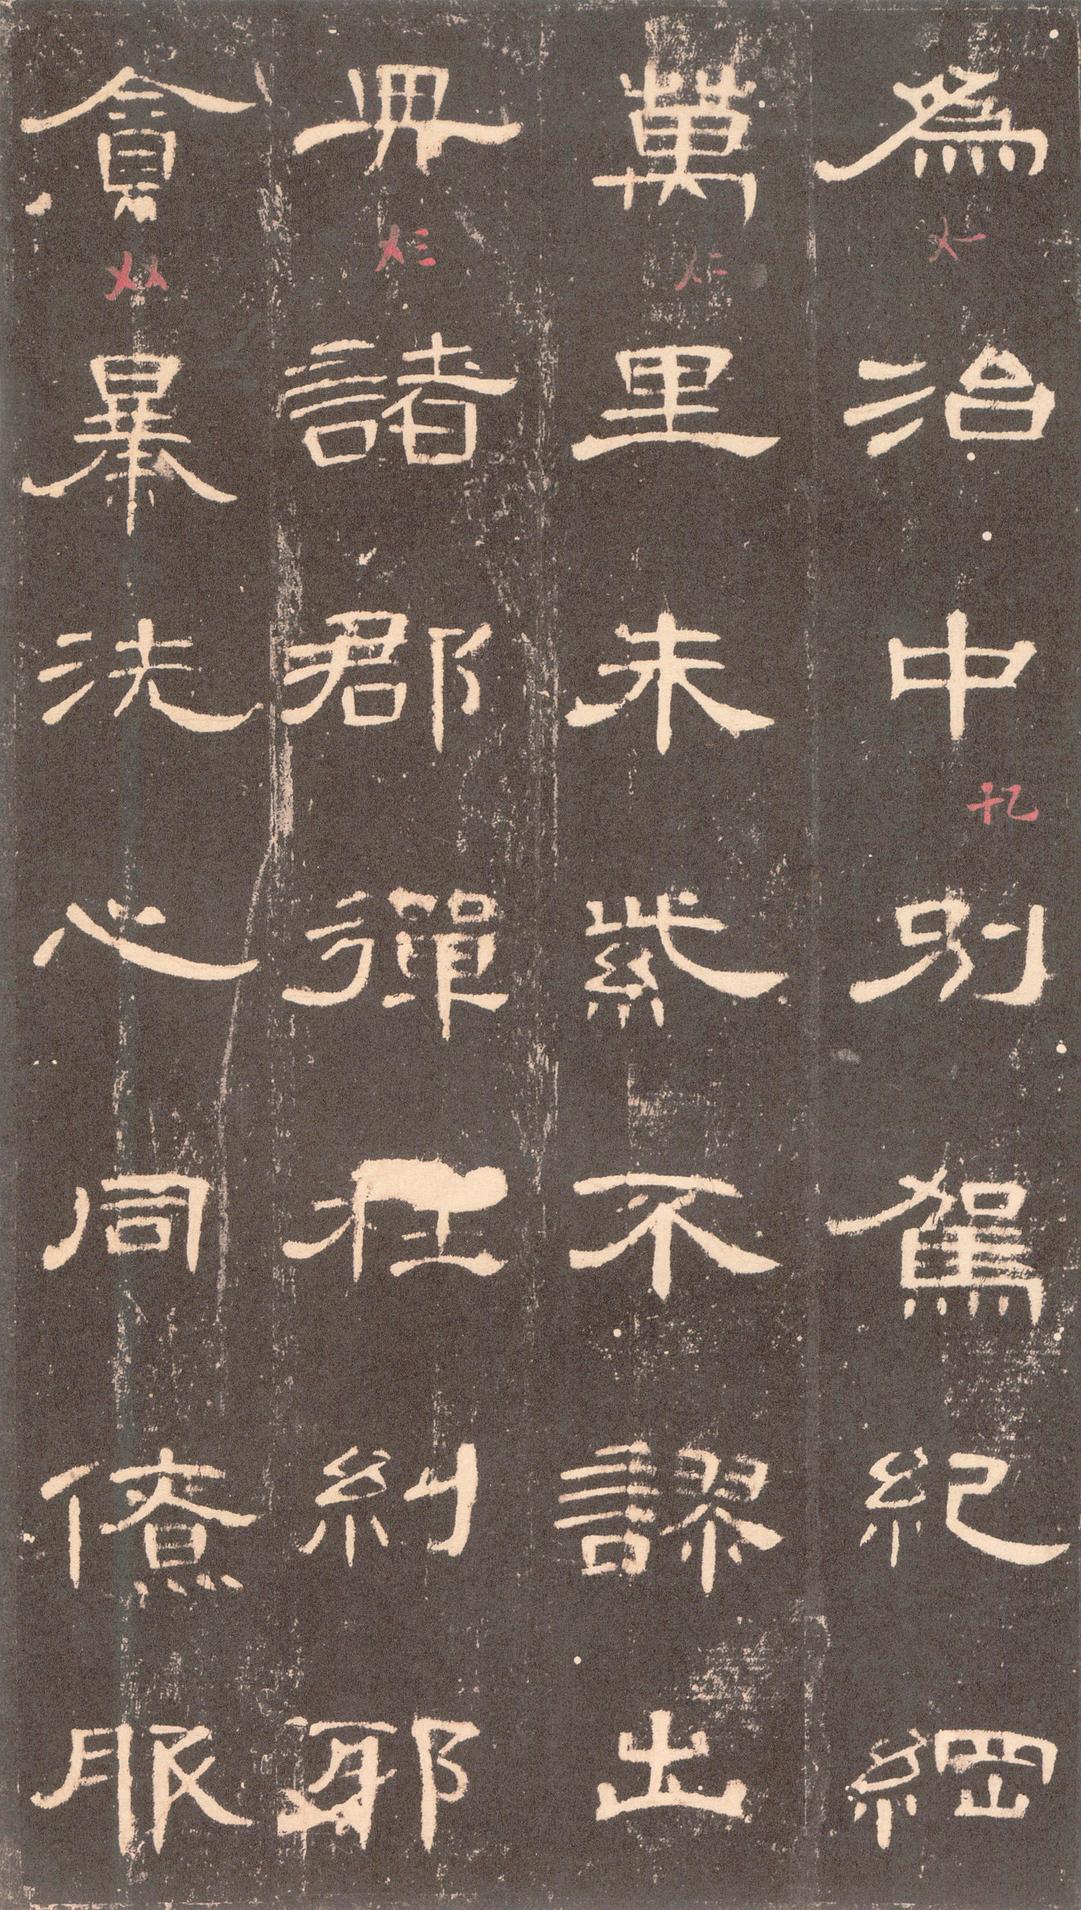 爲治中別駕紀綱
萬里朱紫不謬出
典諸郡彈枉糾邪
貪暴洗心同僚服